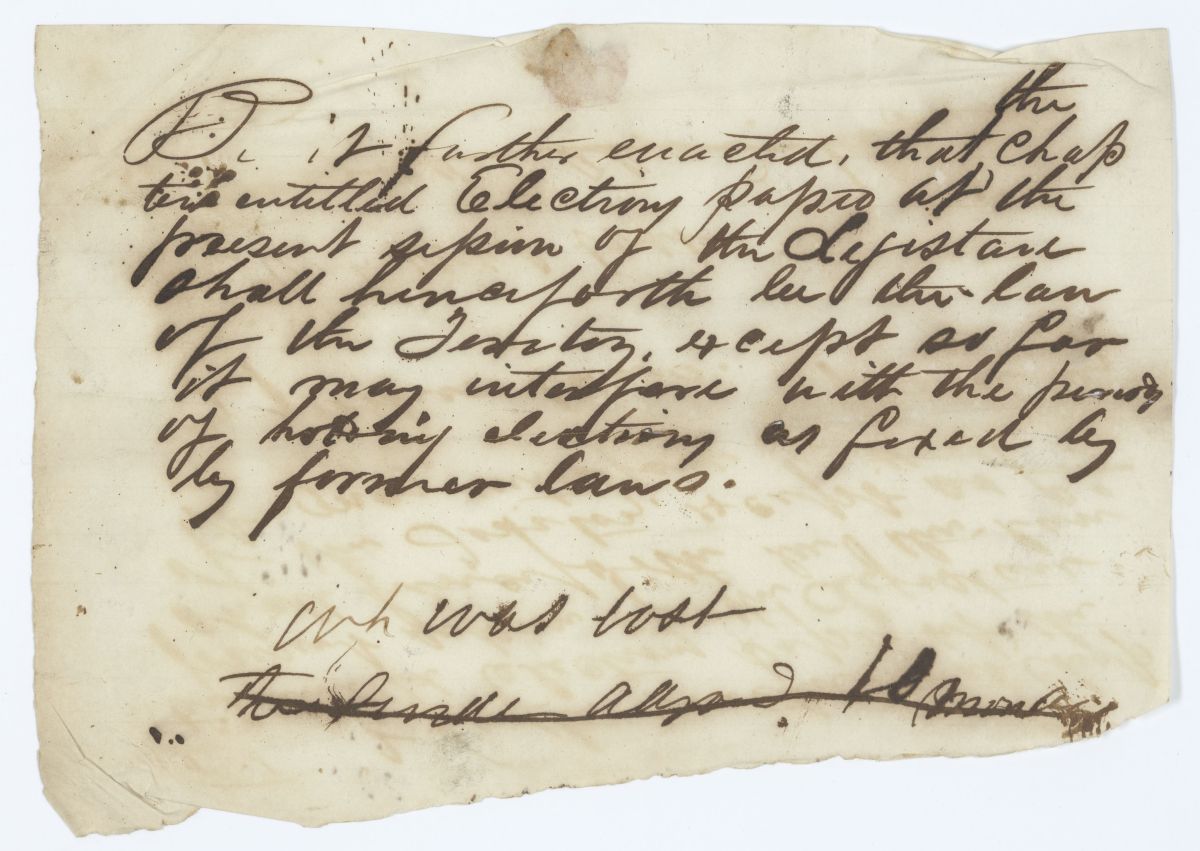 the
Be it further enacted, that chap
ter entitled Elections passed at the
present session of the Legistare
shall henceforth be the law
of the Territory, except so far
it may interfere with the periods
of holding elections as fixed by
by former laws.
Wh was lost
The House